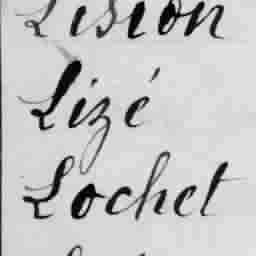 Lision
Lizé
Lochet